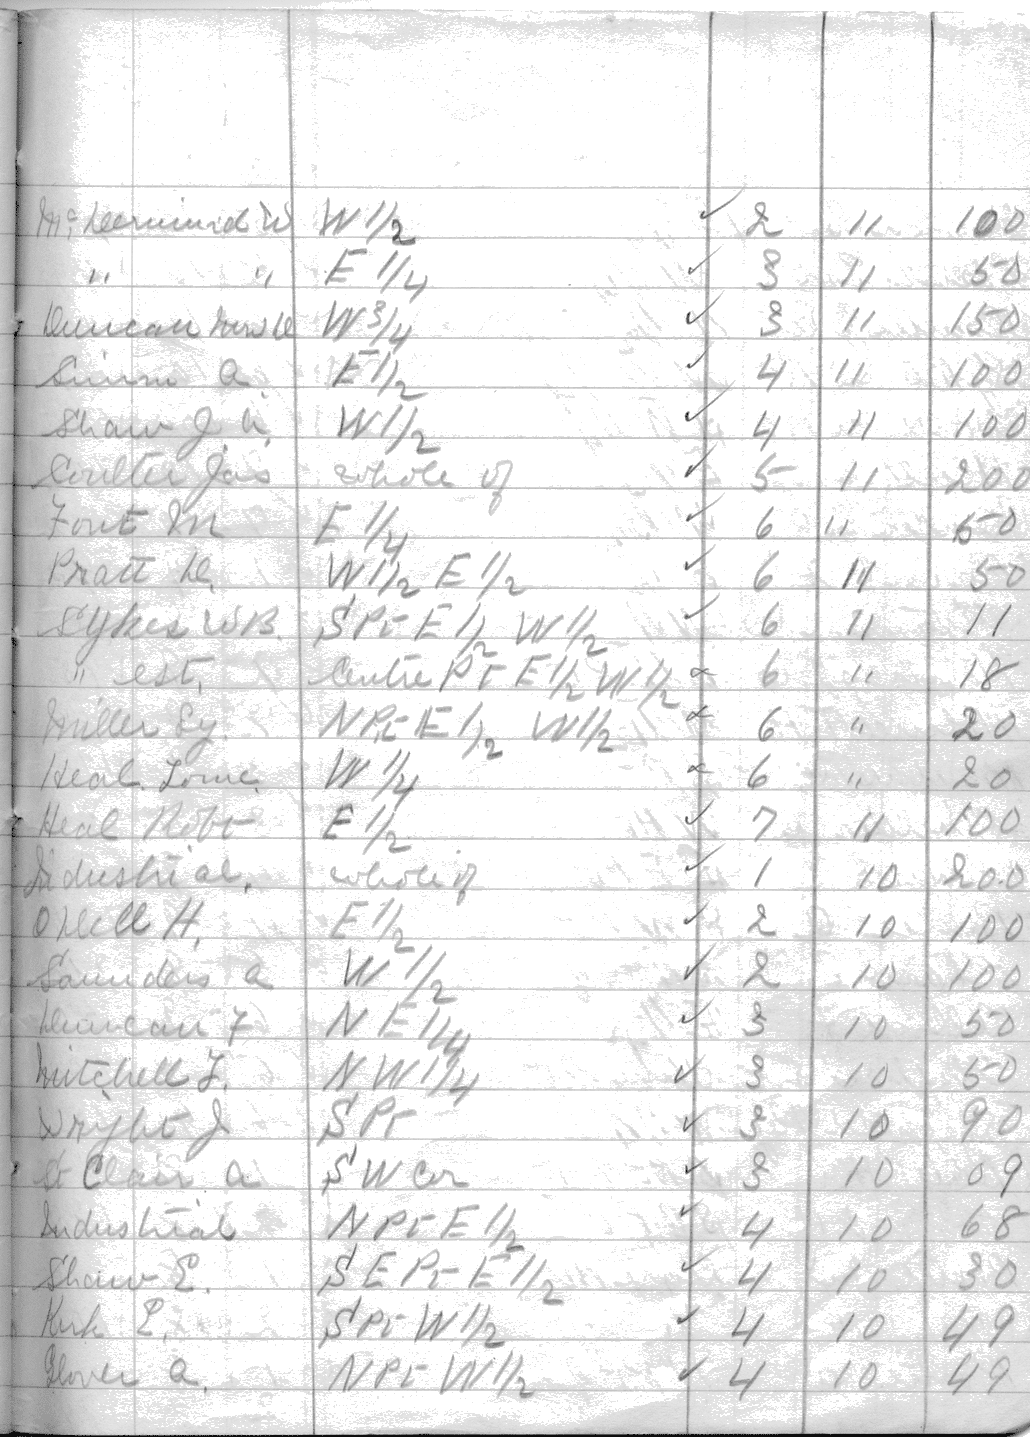 Mc Dermid W W 1/2 ✓ 2 11 100
" " E 1/4 ✓ 3 11 50
Duncan W 3/4 ✓ 3 11 150
Simm A. E 1/2 ✓ 4 11 100
Shaw J. W 1/2 ✓ 4 11 100
Coulter Jas whole of ✓ 5 11 200
Font M E 1/4 ✓ 6 11 50
Pratt D. W 1/2 E 1/2 ✓ 6 11 50
Sykes W.B. S Pt E 1/2 W 1/2 ✓ 6 11 11
" est. Centre Pt E 1/2 W 1/2 x 6 " 18
Miller Ey. N Pt E 1/2 W 1/2 x 6 " 20
Heal W 1/4 x 6 " 20
Heal Robt E 1/2 ✓ 7 11 100
Industrial. whole of ✓ 1 10 200
Odell H. E 1/2 ✓ 2 10 100
Saunders A W 1/2 ✓ 2 10 100
Duncan F N E 1/4 ✓ 3 10 50
Mitchell F. N W 1/4 ✓ 3 10 50
Wright J S Pt ✓ 3 10 90
St Clair A S W Cor ✓ 3 10 09
Industrial N Pt E 1/2 ✓ 4 10 68
Shaw E. S E Pt E 1/2 ✓ 4 10 30
Kirk E. S Pt W 1/2 ✓ 4 10 49
Glover A. N Pt W 1/2 ✓ 4 10 49